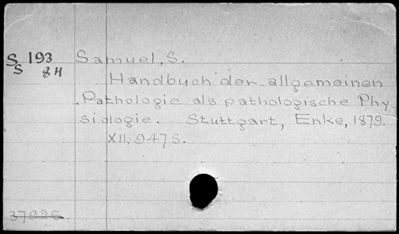 S 193 Samuel, S.
S 8H
Handbuch der allgemeinen
Pathologie als pathologische Phy-
siologie. Stuttgart, Enke, 1879.
XII, 947 S.
37826